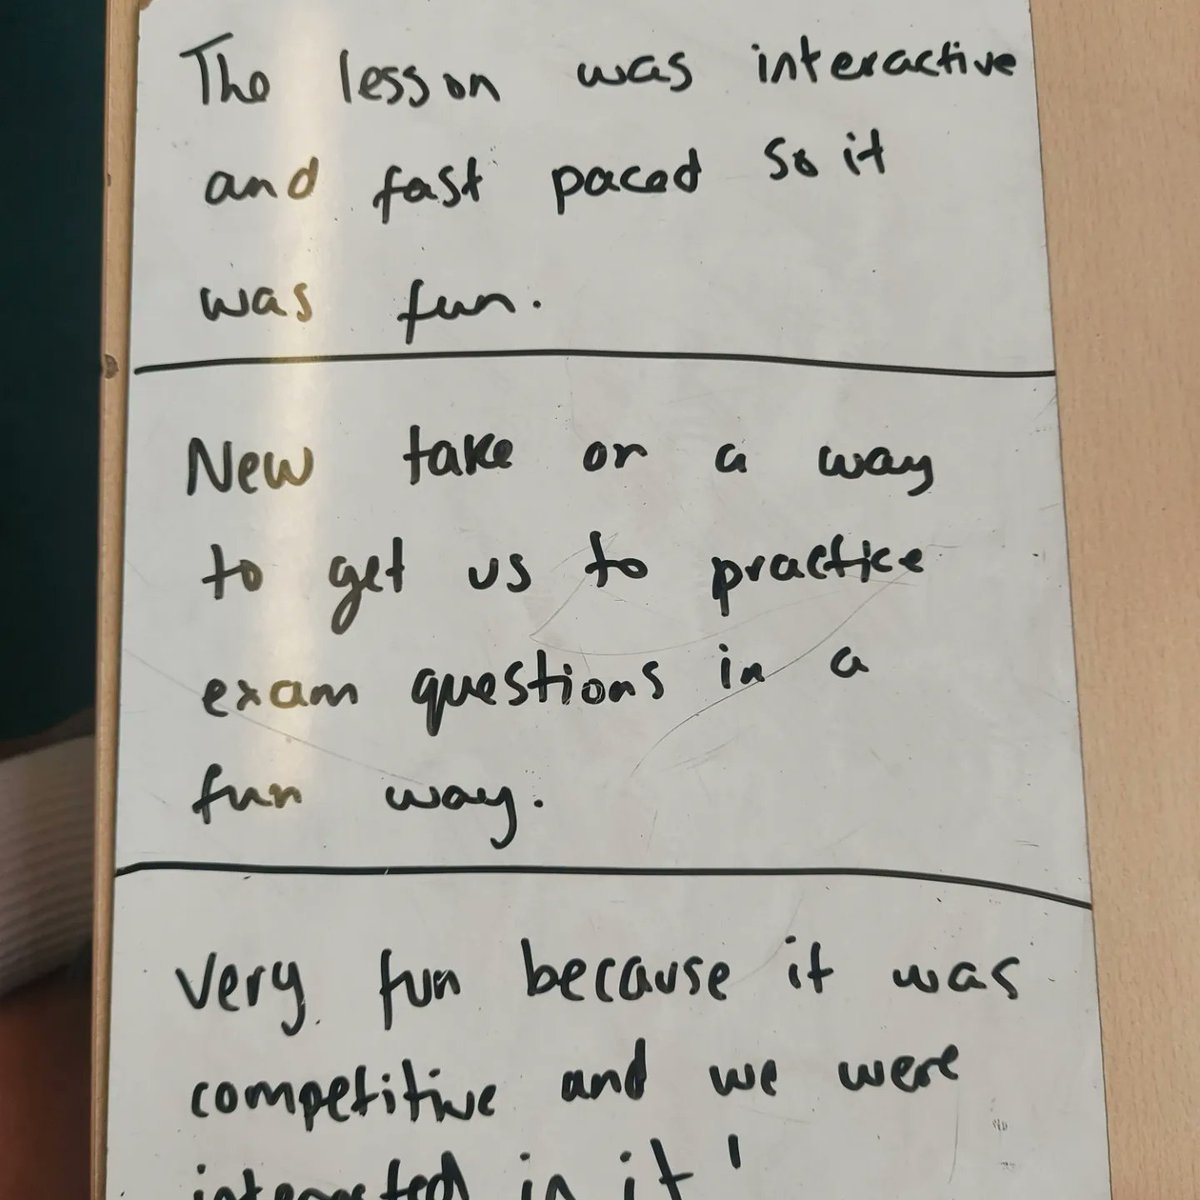 The lesson was interactive
and fast paced so it
was fun.
New take on a way
to get us to practice
exam questions in a
fun way.
Very fun because it was
competitive and we were
interested in it!